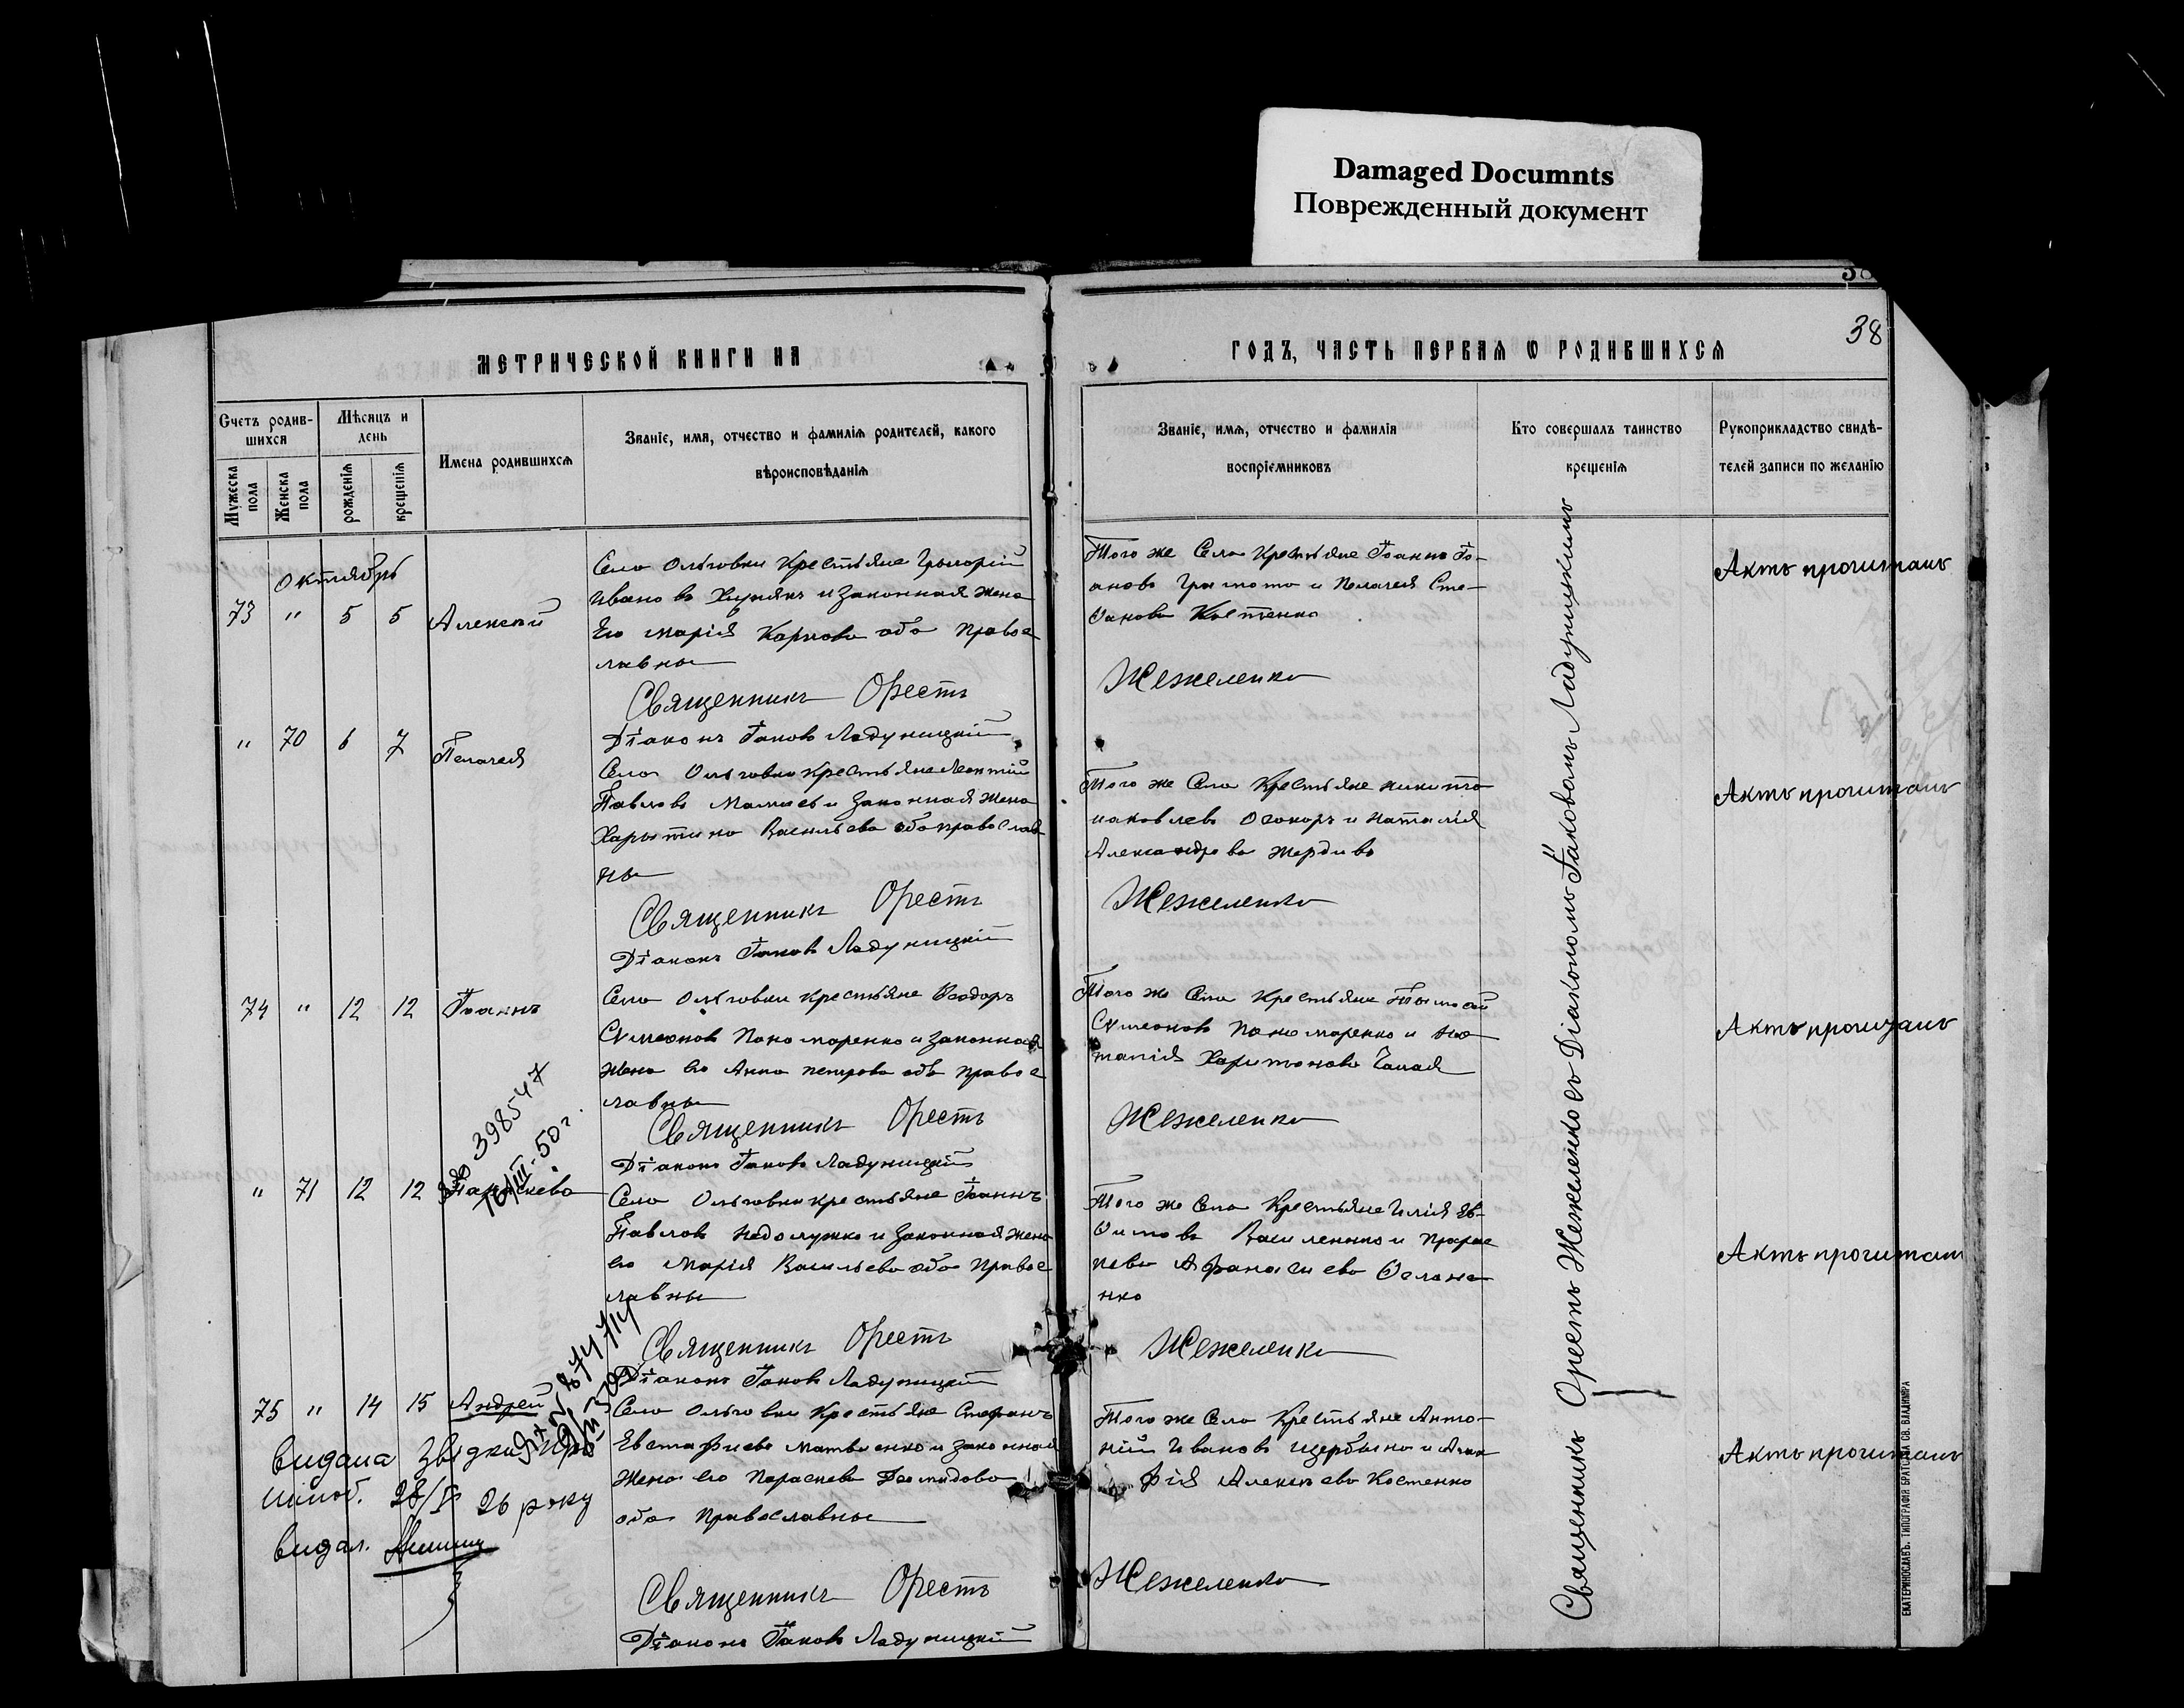 Damaged Documnts
Поврежденный документ
38
МЕТРИЧЕСКОЙ КНИГИ НА
ГОДЪ, ЧАСТЬ ПЕРВАЯ Ѡ РОДИВШИХСѦ
Счетъ родив-
шихся
Мѣсяцъ и
день
Мужеска
пола
Женска
пола
рожденія
крещенія
Имена родившихсѧ
Званіе, имя, отчество и фамилія родителей, какого
вѣроисповѣданія
Званіе, имя, отчество и фамилія
воспріемниковъ
Кто совершалъ таинство
крещенія
Рукоприкладство свидѣ-
телей записи по желанію
Октябрь
73 " 5 5 Алексій
Села Ольговки Крестьяне Григорій
Ивановъ и законная жена
Его Марія Карпова оба правос
лавны
Священникъ Орестъ
Діаконъ Іаковъ Ладуницкій
Того же Села Крестьяне Іоаннъ Іо-
ановъ и Пелагея Сте-
Костенко
Жежеленко
Актъ прочитанъ
" 70 6 7 Пелагея
Села Ольговки Крестьяне Леонтій
Павловъ и законная жена
Харытина Васильева оба православ
ны
Священникъ Орестъ
Діаконъ Іаковъ Ладуницкій
Того же Села Крестьяне Никита
Иаковлевъ и Наталія
Александрова
Жежеленко
Актъ прочитанъ
74 " 12 12 Іоаннъ
Села Ольговки Крестьяне Ѳеодоръ
Сѵмеоновъ Пономаренко и законная
жена его Анна Петрова оба правос
лавны
Священникъ Орестъ
Діаконъ Іаковъ Ладуницкій
Того же Села Крестьяне
Сѵмеоновъ Пономаренко и На
талія Харитонова
Жежеленко
Актъ прочитанъ
398547
10/III-50г.
" 71 12 12 Параскева
Села Ольговки крестьяне Іоаннъ
Павловъ Недолужко и законная жена
его Марія Васильева оба правос
лавны
Священникъ Орестъ
Діаконъ Іаковъ Ладуницкій
Того же Села Крестьяне Илія Ев-
Василенко и Парас
кева Афанасиева
нко
Жежеленко
Актъ прочитанъ
75 " 14 15 Андрей
Села Ольговки Крестьяне Стефанъ
Евстафиевъ Матвиенко и законная
жена его Параскева
оба Православны
Священникъ Орестъ
Діаконъ Іаковъ Ладуницкій
Того же Села Крестьяне Анто-
ній Ивановъ Щербина и Ага
фія Алексѣева Костенко
Жежеленко
Актъ прочитанъ
видана
26 року
видал.
Священникъ Орестъ Жежеленко съ Діакономъ Іаковомъ Ладуницкимъ
ЕКАТЕРИНОСЛАВЪ. ТИПОГРАФІЯ БРАТСТВА СВ. ВЛАДИМІРА